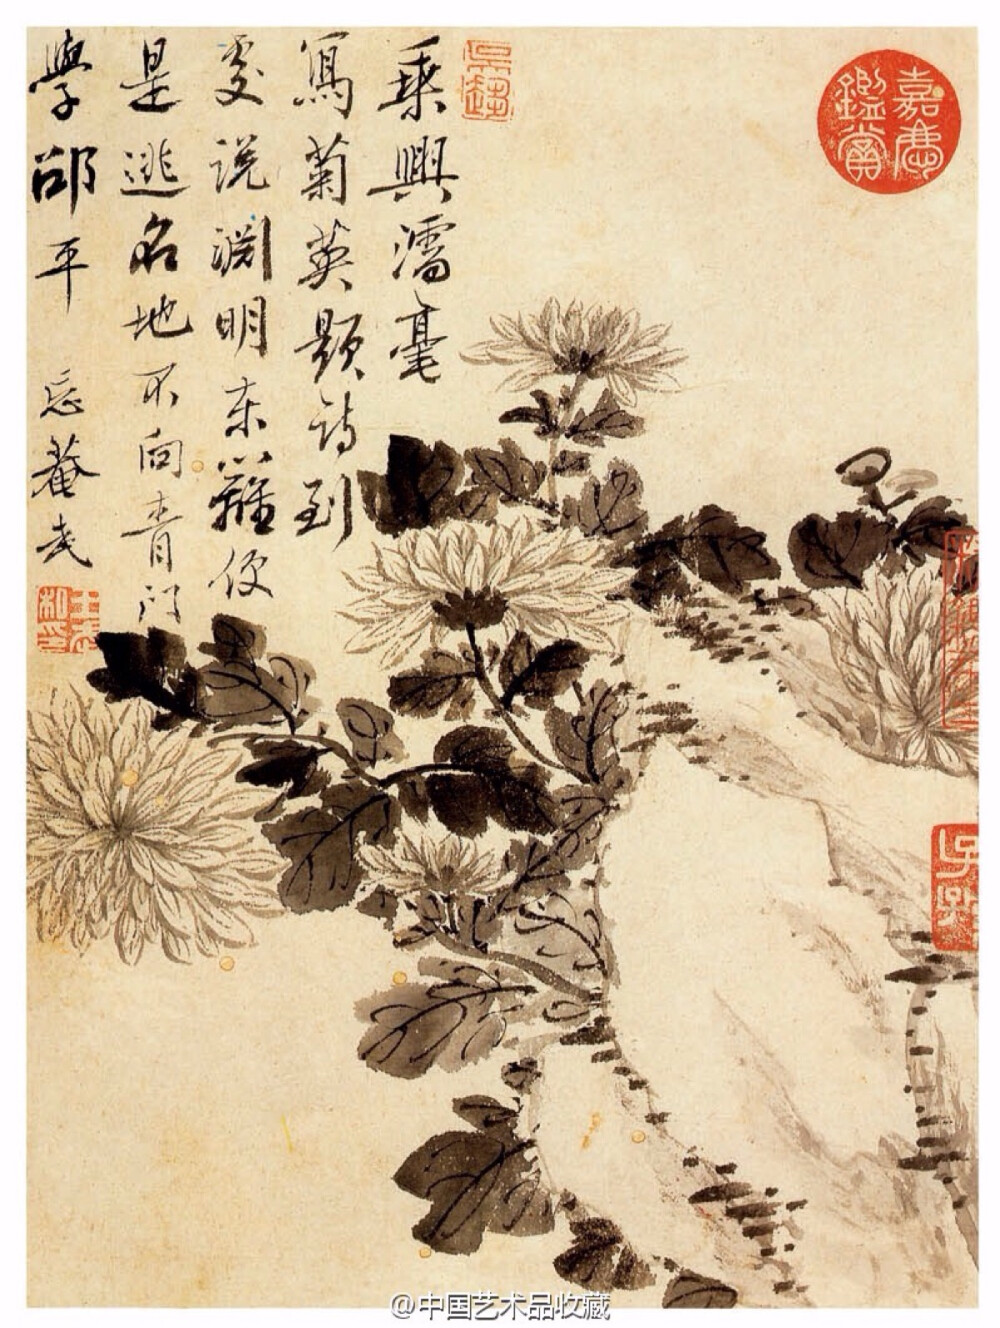 乘興濡毫
寫菊英題詩到
處說淵明東籬便
是逃名地不向青門
學邵平 忘菴武
嘉慶
鑑賞
@中国艺术品收藏